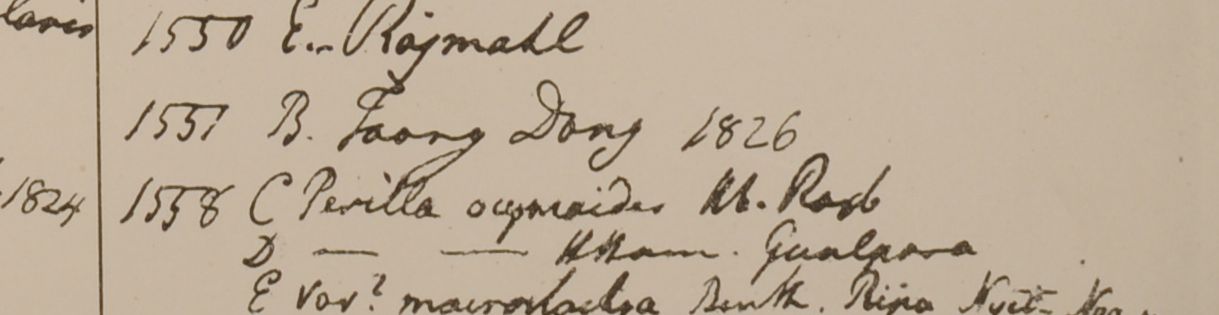 laris 1550 E.. Rajmahl
1551 B. Taong Dong 1826
1824 1558 C Perilla ocymoides Hb. Roxb
D — — HHam. Gualpara
E var? macrostachya Benth. Ripa